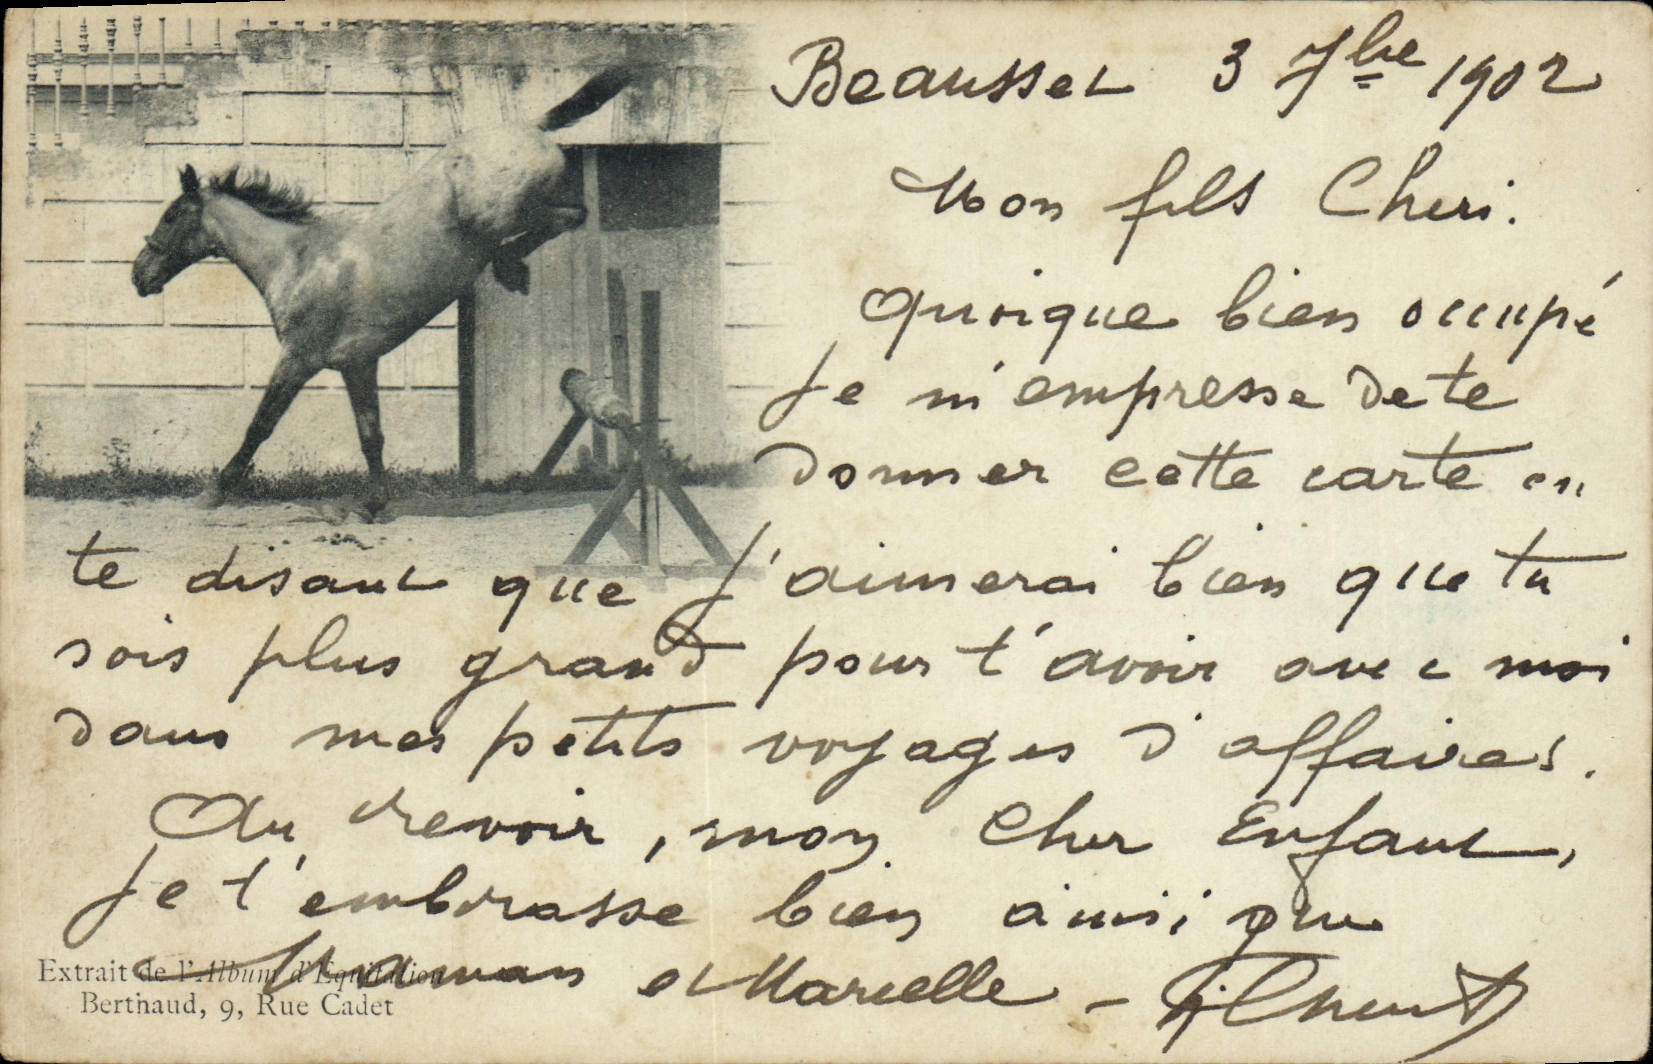 Beausset 3 7bre 1902
Mon fils Cheri.
Quoique bien occupé
je m'empresse de te
donner cette carte en
te disant que j'aimerai bien que tu
sois plus grand pour t'avoir avec moi
dans mes petits voyages d'affaires.
Au revoir, mon Cher Enfant,
je t'embrasse bien ainsi que
Maman et Marcelle -
Extrait de l'Album d'Equitation
Berthaud, 9, Rue Cadet